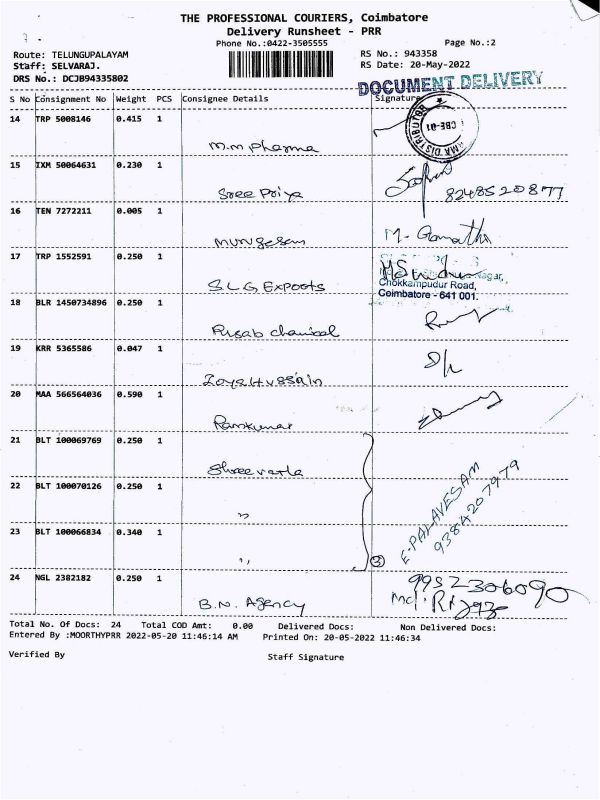 THE PROFESSIONAL COURIERS, Coimbatore
Delivery Runsheet - PRR
Phone No.:0422-3505555
Page No.:2
Route: TELUNGUPALAYAM
RS No.: 943358
Staff: SELVARAJ.
RS Date: 20-May-2022
DRS No.: DCJB94335802
DOCUMENT DELIVERY
S No Consignment No Weight PCS Consignee Details Signature
14 TRP 5008146 0.415 1
M.M Pharma
15 IXM 50064631 0.230 1
Sree Priya 8248520877
16 TEN 7272211 0.005 1
Murugesan M.
17 TRP 1552591 0.250 1
S.L.G Exports
Nagar,
Chokkampudur Road,
Coimbatore - 641 001.
18 BLR 1450734896 0.250 1
Risab chanical
19 KRR 5365586 0.047 1
Zoya Hussain
20 MAA 566564036 0.590 1
Ramkumar
21 BLT 100069769 0.250 1
Shree varla
22 BLT 100070126 0.250 1
"
E.PALAVESAM
9384207979
23 BLT 100066834 0.340 1
" 3
24 NGL 2382182 0.250 1
B.N. Agency
9952306090
Total No. Of Docs: 24 Total COD Amt: 0.00 Delivered Docs: Non Delivered Docs:
Entered By :MOORTHYPRR 2022-05-20 11:46:14 AM Printed On: 20-05-2022 11:46:34
Verified By Staff Signature